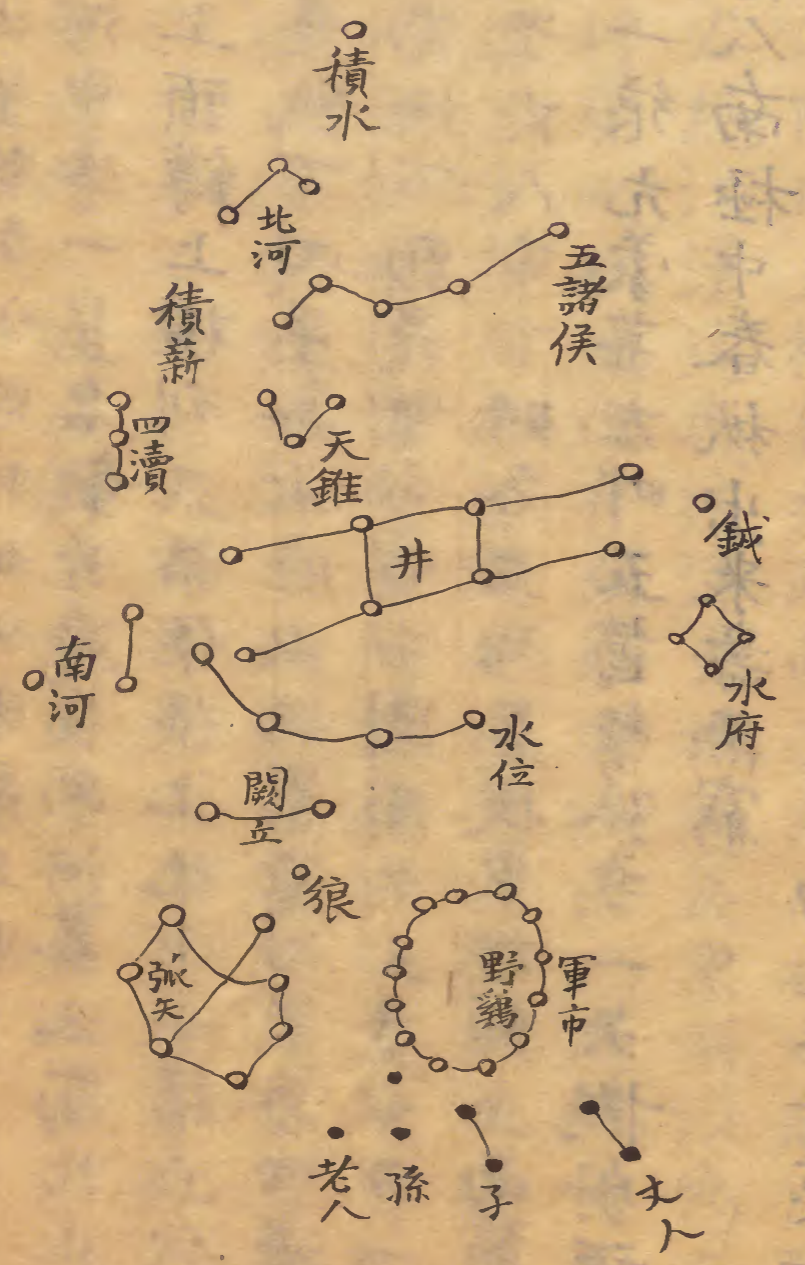 積水
北河
五諸侯
積薪
四瀆
天錐
井
鉞
水府
南河
水位
闕丘
狼
弧矢
野鷄
軍市
老人
孫
子
丈人